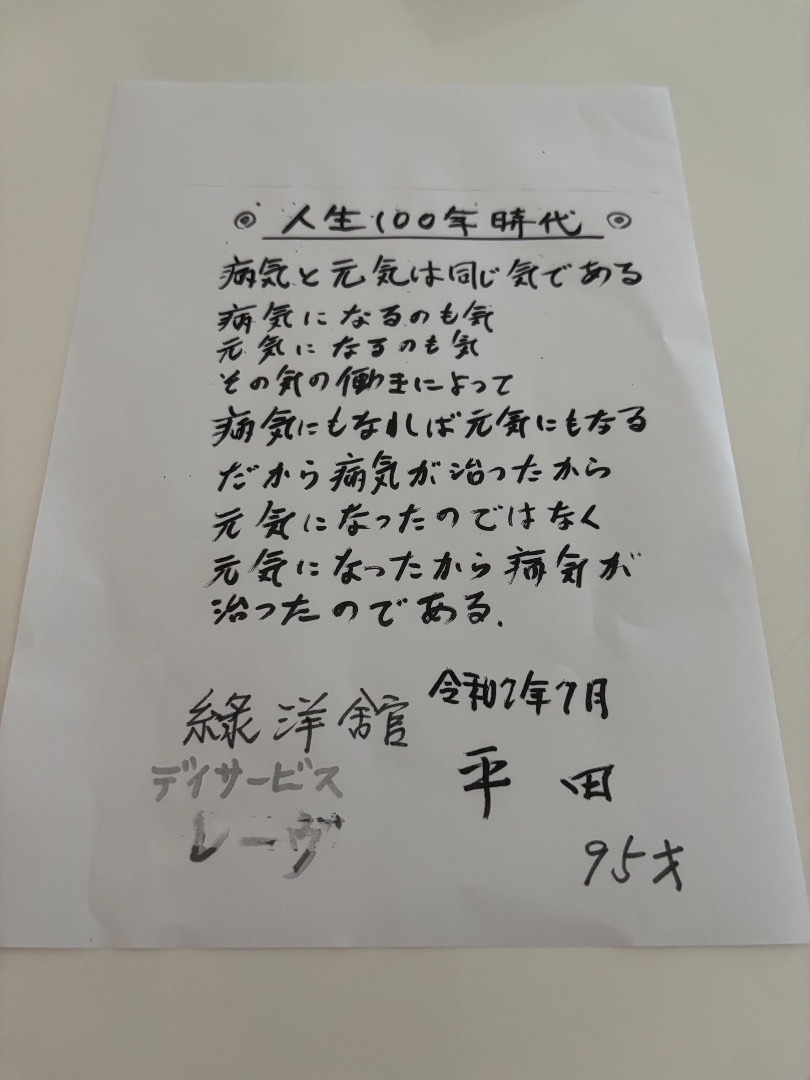 ◎ 人生100年時代 ◎
病気と元気は同じ気である
病気になるのも気
元気になるのも気
その気の働きによって
病気にもなれば元気にもなる
だから病気が治ったから
元気になったのではなく
元気になったから病気が
治ったのである.
令和7年7月
緑洋館
デイサービス
レーヴ
平田
95才